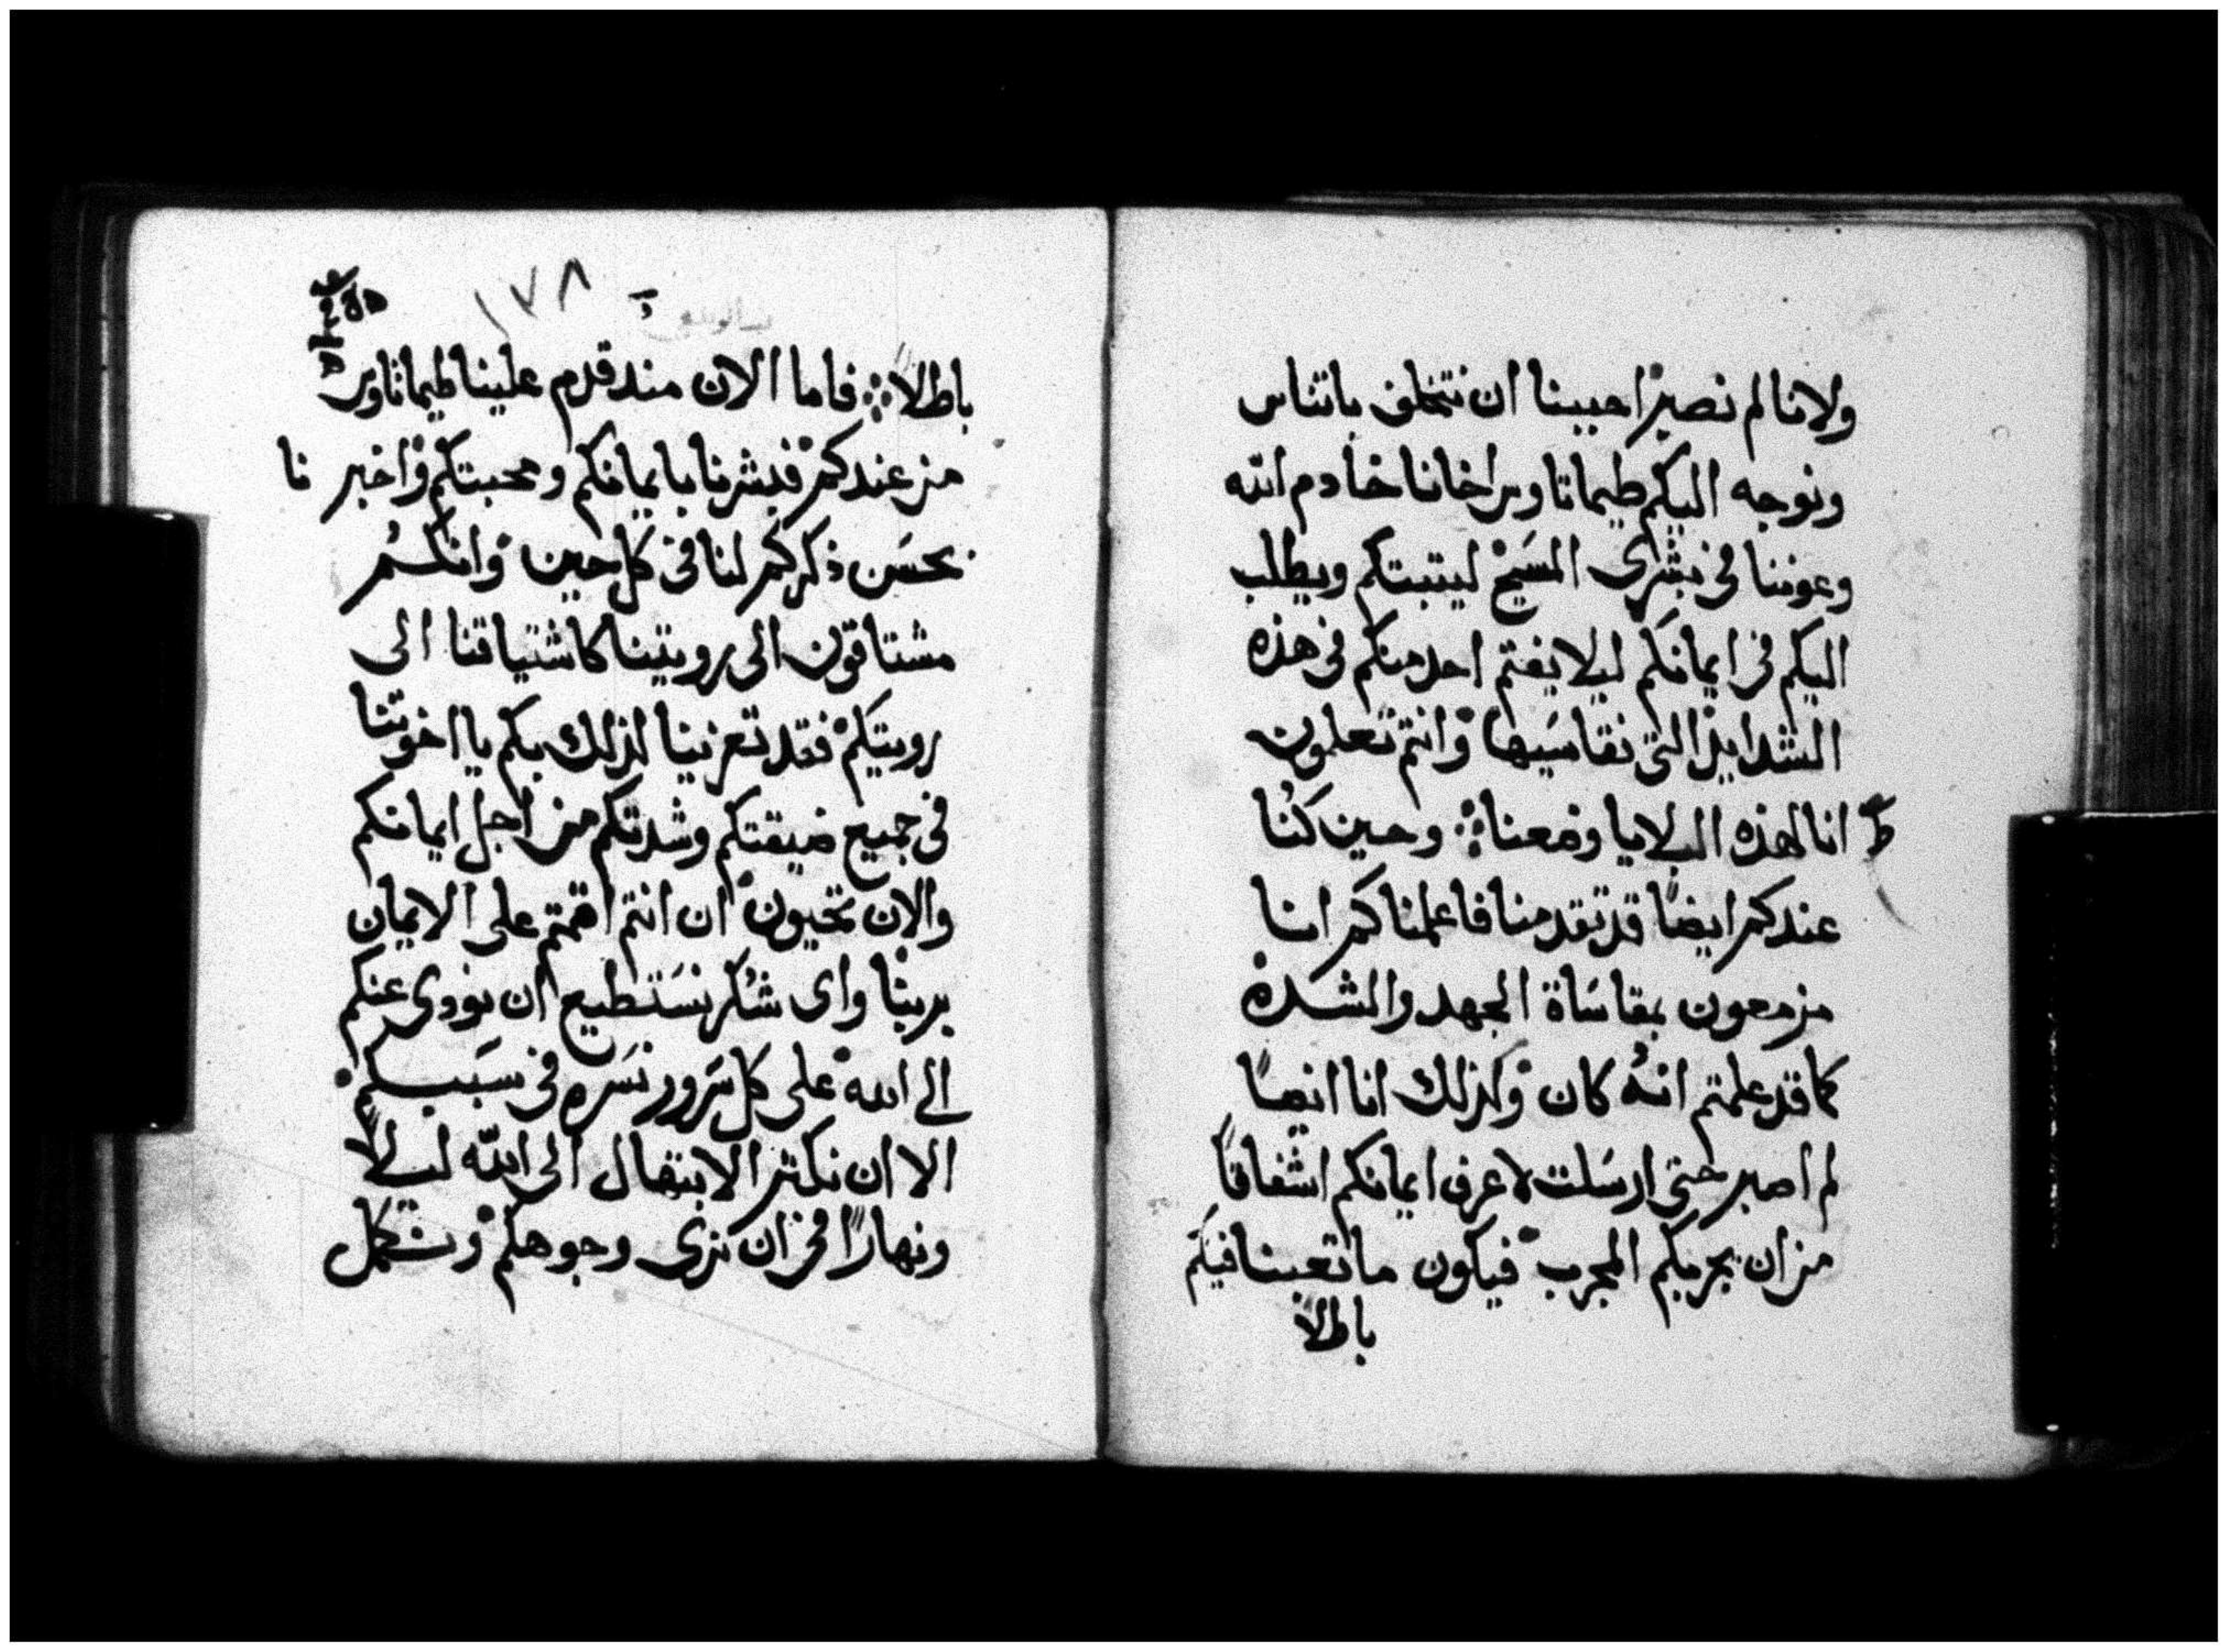 ولاننا لم نصبر احببنا ان نتخلف باتناس
ونوجه اليكم طيماتاوس اخانا خادم الله
وعوننا في بشرى المسيح ليثبتكم ويطلب
اليكم في ايمانكم ليلا يغتم احد منكم في هذه
الشدايد التي نقاسيها وانتم تعلمون
ط
انا لهذه البلايا وضعنا ؞ وحين كنا
عندكم ايضًا قد تقدمنا فاعلمناكم اننا
مزمعون بمقاساة الجهد والشدة
كما قد علمتم انهُ كان ولذلك انا ايضًا
لم اصبر حتى ارسلت لاعرف ايمانكم اشفاقًا
من ان يجربكم المجرب فيكون ما تعبنا فيكم
باطلاً
١٧٨
باطلاً ؞ فاما الان منذ قدم علينا طيماتاوس
من عندكم فبشرنا بايمانكم ومحبتكم واخبرنا
بحسن ذكركم لنا في كل حين وانكم
مشتاقون الى رويتنا كاشتياقنا الى
رويتكم فقد تعزينا لذلك بكم يا اخوتنا
في جميع ضيقتكم وشدتكم من اجل ايمانكم
والان نحيون ان انتم اقمتم على الايمان
بربنا واى شكر نستطيع ان نودى عنكم
الى الله على كل سرور نسره في سببكم
الا ان نكثر الابتهال الى الله ليلاً
ونهارًا في ان نرى وجوهكم ونكمل